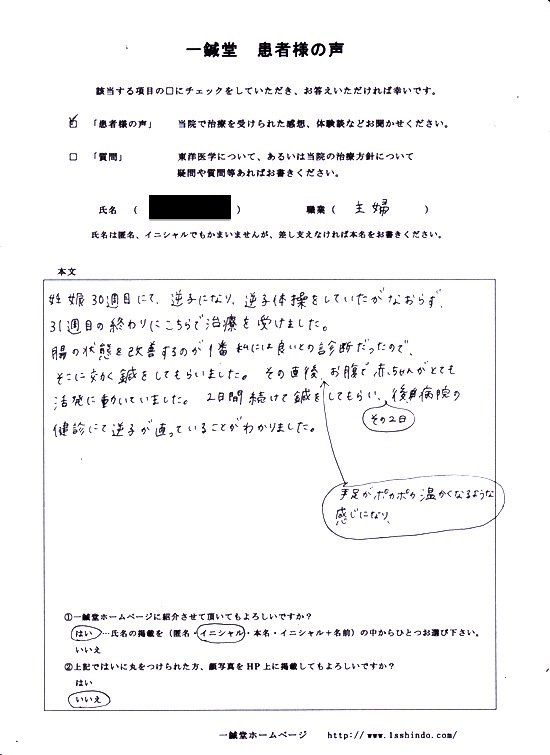 一鍼堂 患者様の声
該当する項目の□にチェックをしていただき、お答えいただければ幸いです。
☑ 「患者様の声」 当院で治療を受けられた感想、体験談などお聞かせください。
□ 「質問」 東洋医学について、あるいは当院の治療方針について
疑問や質問等あればお書きください。
氏名 ( ) 職業 ( 主婦 )
氏名は匿名、イニシャルでもかまいませんが、差し支えなければ本名をお書きください。
本文
妊娠30週目にて、逆子になり、逆子体操をしていたがなおらず、
31週目の終わりにこちらで治療を受けました。
腸の状態を改善するのが1番私には良いとの診断だったので、
そこに効く鍼をしてもらいました。その直後、お腹で赤ちゃんがとても
活発に動いていました。2日間続けて鍼をしてもらい、後日病院の
その2日
健診にて逆子が直っていることがわかりました。
手足がポカポカ温かくなるような
感じになり、
①一鍼堂ホームページに紹介させて頂いてもよろしいですか？
はい…氏名の掲載を（匿名・イニシャル・本名・イニシャル＋名前）の中からひとつお選び下さい。
いいえ
②上記ではいに丸をつけられた方、顔写真をHP上に掲載してもよろしいですか？
はい
いいえ
一鍼堂ホームページ http://www.1sshindo.com/